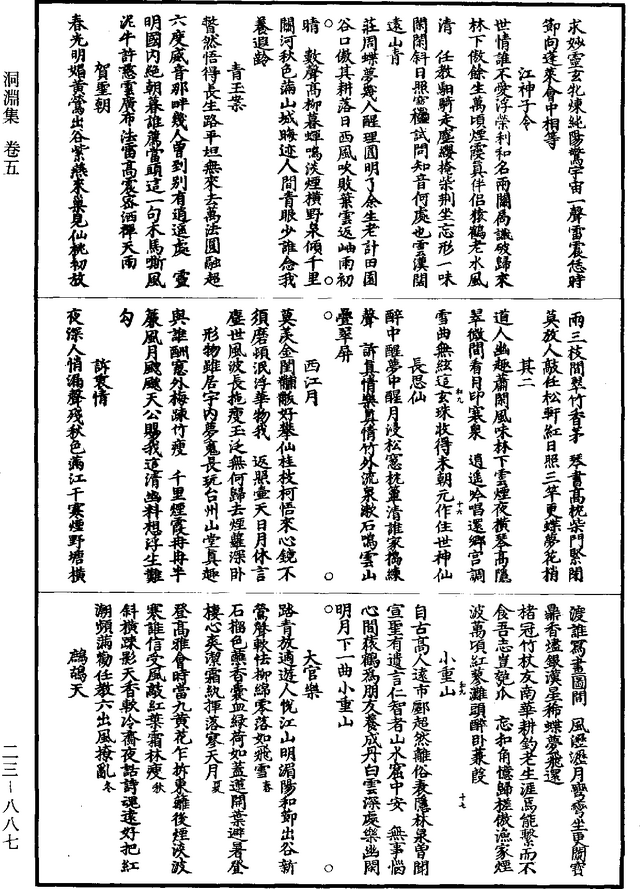 洞淵集　卷五
二三—八八七
求妙靈玄牝煉純陽驚宇宙一聲雷震恁時
節向蓬萊會中相等
江神子令
世情誰不愛浮榮利和名兩關爲識破歸來
林下傲餘生萬頃煙霞真伴侶猿鶴老水風
清　任教駟騎走塵纓掩柴荆坐忘形一味
閑閑斜日照窓櫺試問知音何處也雲漢闊
遠山青
莊周蝶夢幾人醒理圓明了余生老計田園
谷口傲其耕落日西風吹敗葉雲返岫雨初
晴　數聲高柳暮蟬鳴淡煙橫野泉傾千里
關河秋色滿山城晦迹人間青眼少誰念我
養遐齡
青玉案
瞥然悟得長生路平坦無來去萬法圓融超
六度威音那畔幾人曾到別有逍遙處　靈
明國內絕朝暮誰薦當頭這一句木馬嘶風
泥牛許慧雲廣布法雷高震密洒禪天雨
賀聖朝
春光明媚黃鶯出谷紫燕來巢見仙桃初放
雨三枝間翠竹香茅　琴書高枕柴門緊閉
莫放人敲任松軒紅日照三竿更蝶夢花梢
其二
道人幽趣蕭閑風味林下雲煙夜橫琴高隱
翠微間看月印寒泉　逍遙吟唱還鄉宫調
雪曲無絃這玄珠收得來朝元作住世神仙
長思仙
醉中醒夢中醒月浸松窓枕簟清誰家擣練
聲　訴真情樂真情竹外流泉漱石鳴雲山
疊翠屏
西江月
莫羡金閨黼黻好攀仙桂枝柯悟來心鏡不
須磨頓泯浮華物我　返照壺天日月休言
塵世風波長拖瘦玉泛無何歸去煙蘿深卧
形物雖居宇內夢鬼長玩台州山堂真趣
與誰酬窓外梅踈竹瘦　千里煙霞冉冉半
簾風月飕飕天公賜我這清幽料想浮生難
勾
訴衷情
夜深人悄漏聲殘秋色滿江干寒煙野塘橫
渡誰寫畫圖間　風瀝瀝月彎彎坐更闌寶
鼎香燼銀漢星稀蝶夢飛還
楮冠竹杖友南華耕釣老生涯馬能繫而不
食吾志豈匏瓜　忘扣角憶歸槎傲漁家煙
波萬頃紅蓼灘頭醉卧蒹葭
小重山
自古高人遠市酈超然離俗表隱林泉曾聞
宣聖有遺言仁智者山水窟中安　無事惱
心間猿鶴爲朋友養成丹白雲深處樂幽閑
明月下一曲小重山
大官樂
踏青放適遊人悅江山明湄陽和節出谷新
鶯聲軟怯柳綿零落如飛雪春
石榴色蘸香囊血綠荷如蓋蓮開葉避暑登
樓心爽潔霜紈揮落寒天月夏
登高雅會時當九黃花乍拆東籬後煙淡波
寒誰信受風敲紅葉霜林瘦秋
斜橫踈影天香軟冷齋夜話詩魂遠好把紅
溯頻滿勸任教六出風撩亂冬
鷓鴣天